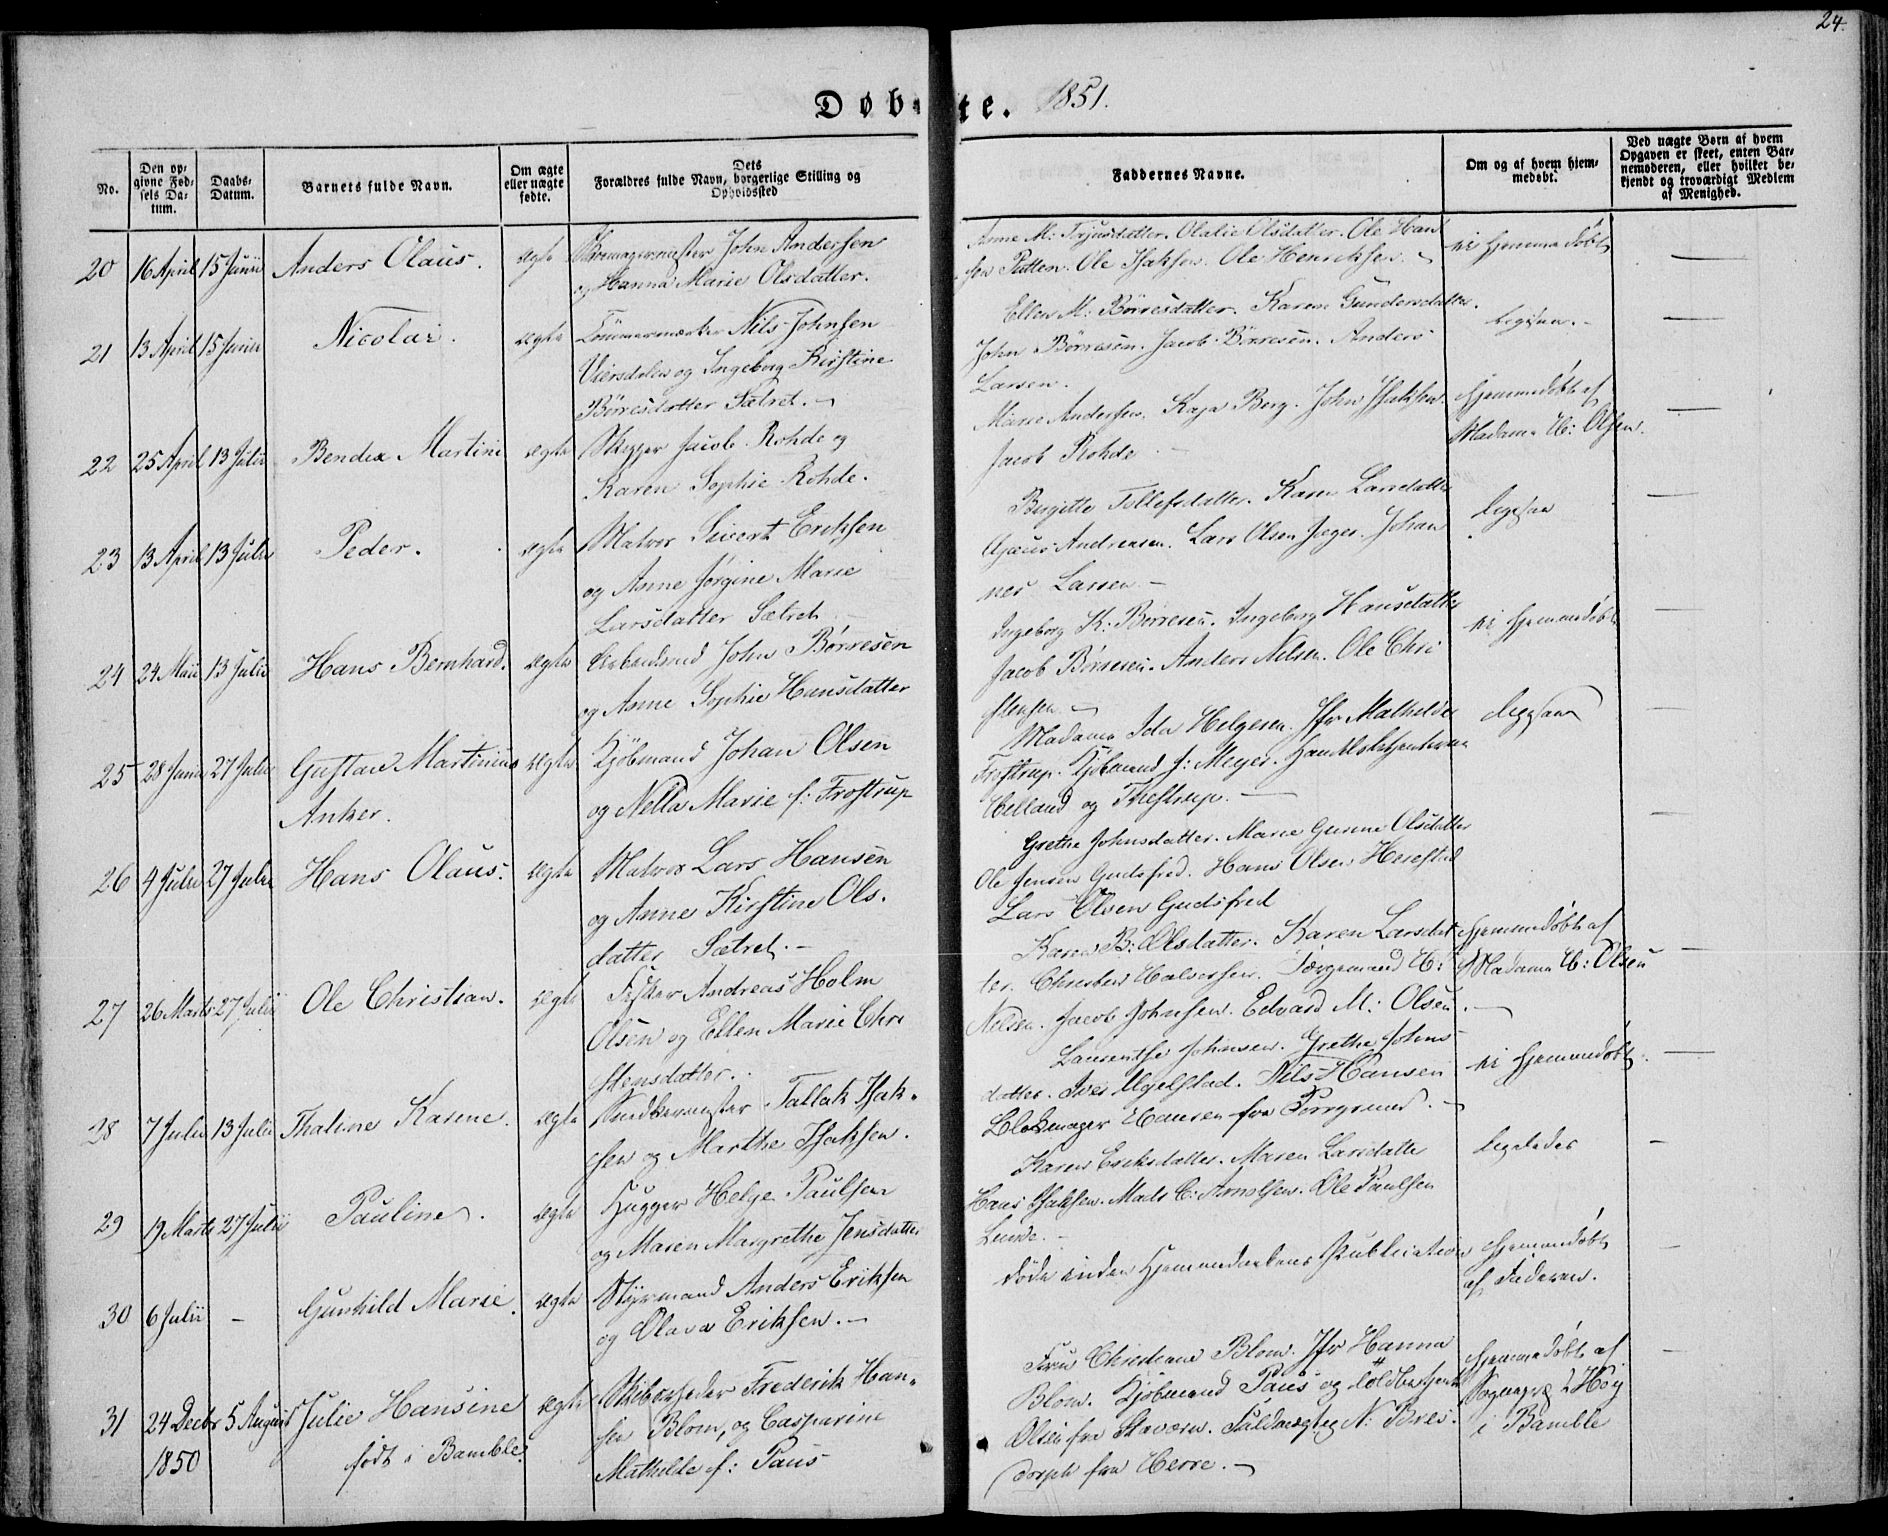 24.
Døbte. 1851.
No.
Den opgivne Fødsels Datum.
Daabs-Datum.
Barnets fulde Navn.
Om ægte eller uægte fødte.
Dets Forældres fulde Navn, borgerlige Stilling og Opholdssted
Faddernes Navne.
Om og af hvem hjemmedøbt.
Ved uægte Børn af hvem Opgaven er skeet, enten Barnemoderen, eller hvilket bekjendt og troværdigt Medlem af Menighed.
20 16 April 15 Junii Anders Olaus. ægte John Andersen
og Hanna Marie Olsdatter.
Anne M: Olalie Olsdatter. Ole Han
sen Ole Isaksen. Ole Henriksen.
ei hjemmedøbt
21 13 April 15 Junii Nicolai. ægte Tømmermand Nils Johnsen
og Ingeborg Kirstine
Børresdatter Sætret.
Ellen M: Børresdatter. Karen Gundersdatter.
John Børresen. Jacob Børresen. Anders
Larsen.
ligesaa.
22 25 April 13 Julii Bendix Martin ægte Skipper Jacob Rohde og
Karen Sophie Rohde.
Marie Andersen. Kaja Berg. John Isaksen.
Jacob Rohde
hjemmedøbt af
Madame U: Olsen.
23 13 April 13 Julii Peder. ægte Matros Sivert Eriksen
og Anne Jørgine Marie
Larsdatter Sætret
Birgitte Tollefsdatter. Karen Larsdatter
Andreasen. Lars Olsen Jæger. Johan
nes Larsen.
ligesaa
24 24 Maii 13 Julii Hans Bernhard. ægte Arbeidsmd John Børresen
og Anne Sophie Hansdatter
Ingeborg K: Børresen. Ingeborg Hansdatter
Jacob Børresen. Anders Nilsen. Ole Chri
stensen
ei hjemmedøbt
25 28 Junii 27 Julii Gustav Martinius
Anker.
ægte Kjøbmand Johan Olsen
og Nella Marie f: Frostrup
Madame Ida Helgesen. Jfr Mathilde
Frostrup. Kjøbmand J: Meyer. Handelsbetjenterne
Helland og Thestrup.
ligesaa
26 4 Julii 27 Julii Hans Olaus. ægte Matros Lars Hansen
og Anne Kirstine Ols.
datter Sætret.
Grethe Johnsdatter. Marie Gurine Olsdatter
Ole Jensen Gudsfred. Hans Olsen
Lars Olsen Gudsfred
27 26 Marts 27 Julii Ole Christian. ægte Fisker Andreas Holm
Olsen og Ellen Marie Chri
stensdatter.
Karen B: Olsdatter. Karen Larsdat
ter. Christen Halvorsen. Færgemand U:
Nilsen. Jacob Johnsen. Edvard M: Olsen.
hjemmedøbt af
Madame U: Olsen
28 7 Julii 13 Julii Thaline Karine. ægte Smedkemester Tallak Isak
sen og Marthe Isaksen.
Laurentse Johnsen. Grethe Johns
datter. Iver Ugelstad. Nils Hansen
Blokmager Hansen fra Porsgrund.
ei hjemmedøbt.
29 19 Marts 27 Julii Pauline. ægte Hugger Helge Paulsen
og Maren Margrethe Jensdatter
Karen Eriksdatter. Maren Larsdatte
Hans Isaksen. Mads C: Arnolsen. Ole Paulsen
Lunde.
ligeledes
30 6 Julii - Gunhild Marie. ægte Styrmand Anders Eriksen
og Olava Eriksen.
døde inden Hjemmedaabens Publication
hjemmedøbt
af Faderen.
31 24 Decbr
1850
5 August Julie Hansine
født i Bamble.
ægte Skibsrheder Frederik Han-
sen Blom, og Casparine
Mathilde f: Paus
Fru Christiane Blom. Jfr Hanna
Blom. Kjøbmand Paus og Toldbetjent
Olsen fra Stavern. Fuldmægtig N: Bres
dorph fra Herre.
hjemmedøbt af
Sognepr Høg
i Bamble